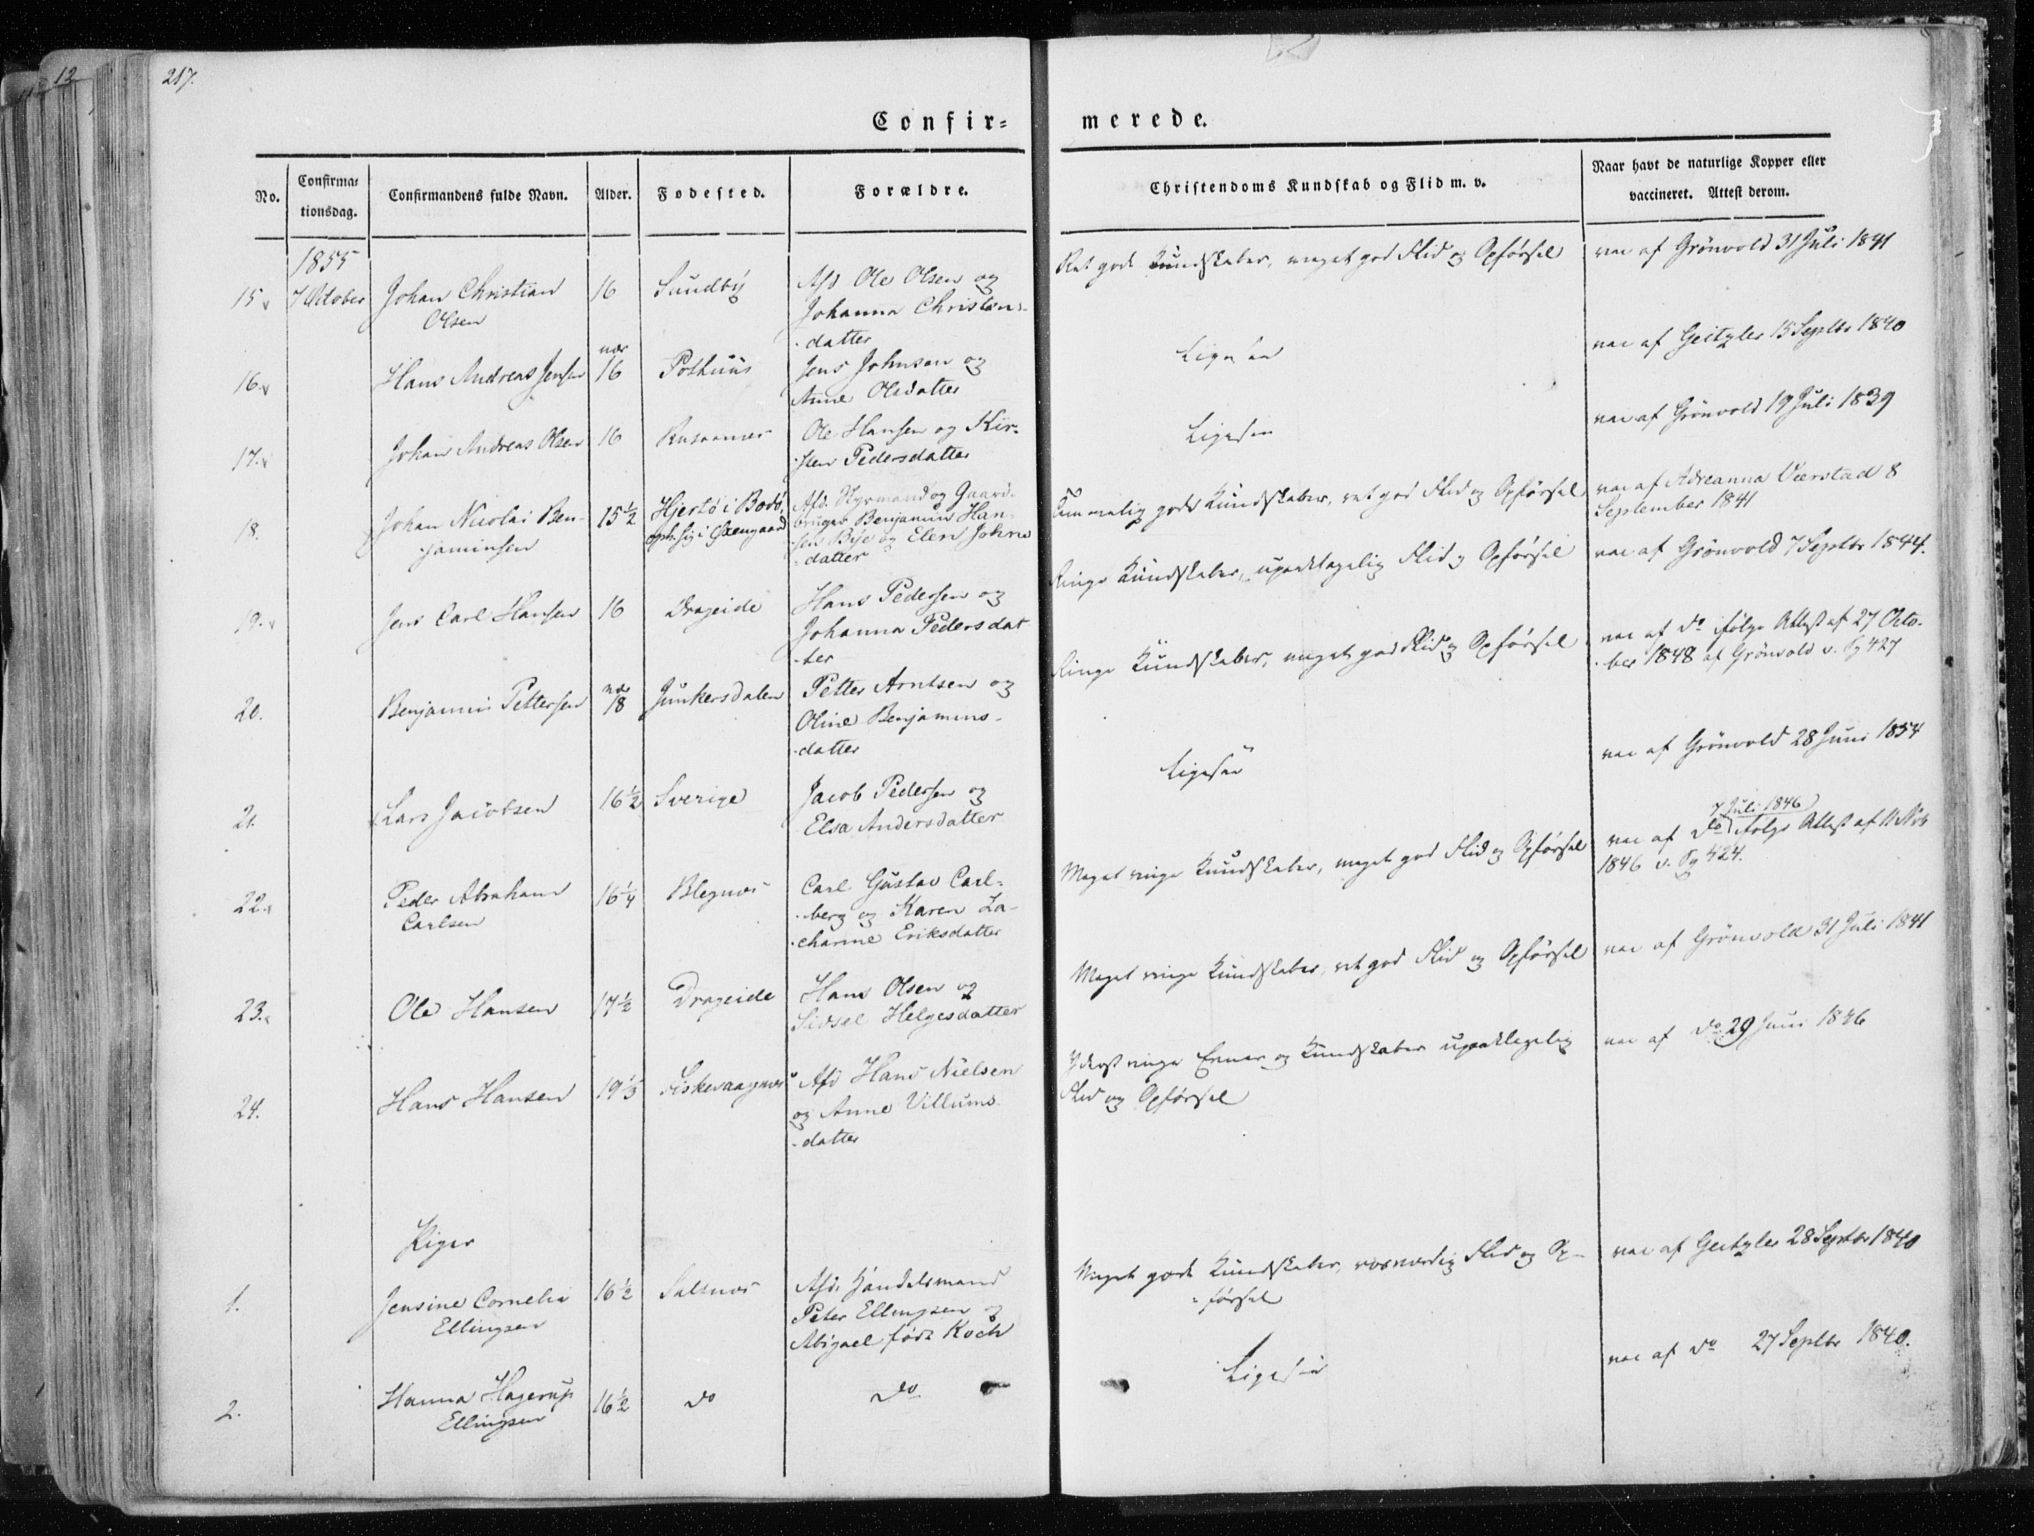 12
217.
Confir= merede.
No.
Confirma=
tionsdag.
Confirmandens fulde Navn.
Alder.
Fødested.
Forældre.
Christendoms Kundskab og Flid m. v.
Naar havt de naturlige Kopper eller
vaccineret. Attest derom.
1855
15. 7 October Johan Christian 16 Sundby Afd Ole Olsen og Ret gode Kundskaber, meget god Flid og Opførsel vac af Grönvold 31 Juli 1841
Olsen Johanna Christens-
datter
16. Hans Andreas Jensen nær 16 Pothuus Jens Johnsen og Ligesaa vac af Geitzler 15 Septbr 1840
Anne Olsdatter
17. Johan Andreas Olsen 16 Rusaanes Ole Hansen og Kir- Ligesaa vac af Grönvold 19 Juli 1839
sten Pedersdatter
18. Johan Nicolai Ben- 15½ Hjertø i Bodø, Afd. Styrmand og Gaard- Temmelig gode Kundskaber, ret god Flid og Opførsel vac af Adreanna Værstad 8
jaminsen opholdt sig i Øxengaard bruger Benjamin Han- September 1841
sen Bye og Elen Johns
datter
19. Jens Carl Hansen 16 Drageide Hans Pedersen og Ringe Kundskaber, upaaklagelig Flid og Opførsel vac af Grönvold 7 Septbr 1844.
Johanna Pedersdat
ter
20. Benjamin Pettersen nær 18 Junkersdalen Petter Arntsen og Ringe Kundskaber, meget god Flid og Opførsel vac af do ifølge Attest af 27 Octo-
Oline Benjamins- ber 1848 af Grönvold v. Pg 427
datter
21. Lars Jacobsen 16½ Sverige Jacob Pedersen og Ligesaa vac af Grönvold 28 Juni 1854
Elsa Andersdatter
22. Peder Abraham 16¼ Blegnes Carl Gustav Carl- Meget ringe Kundskaber, meget god Flid og Opførsel vac af do 7 Juli 1846 ifølge Attest af 11 Nov
Carlsen berg og Karen Za- 1846 v. Pg 424.
charine Eriksdatter
23. Ole Hansen 17½ Drageide Hans Olsen og Meget ringe Kundskaber, ret god Flid og Opførsel vac af Grönvold 31 Juli 1841
Sidsel Helgesdatter
24. Hans Hansen 19⅓ Fiskevaagnes Afd Hans Nielsen Yderst ringe Evner og Kundskaber upaaklagelig vac af do 29 Juni 1846
og Anne Villums Flid og Opførsel
datter
Piger
1. Jensine Cornelia 16½ Saltnes Afd. Handelsmand Meget gode Kundskaber, roesværdig Flid og Op- vac af Geitzler 28 Septbr 1840
Ellingsen Peter Ellingsen og førsel
Abigael født Koch
2. Hanna Hagerup 16½ do do Ligesaa vac af do 27 Septbr 1840.
Ellingsen